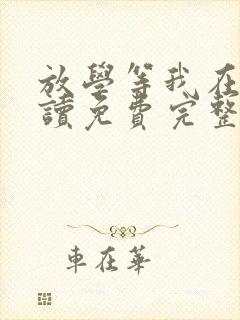 放學等我在
讀免費完整
車在華